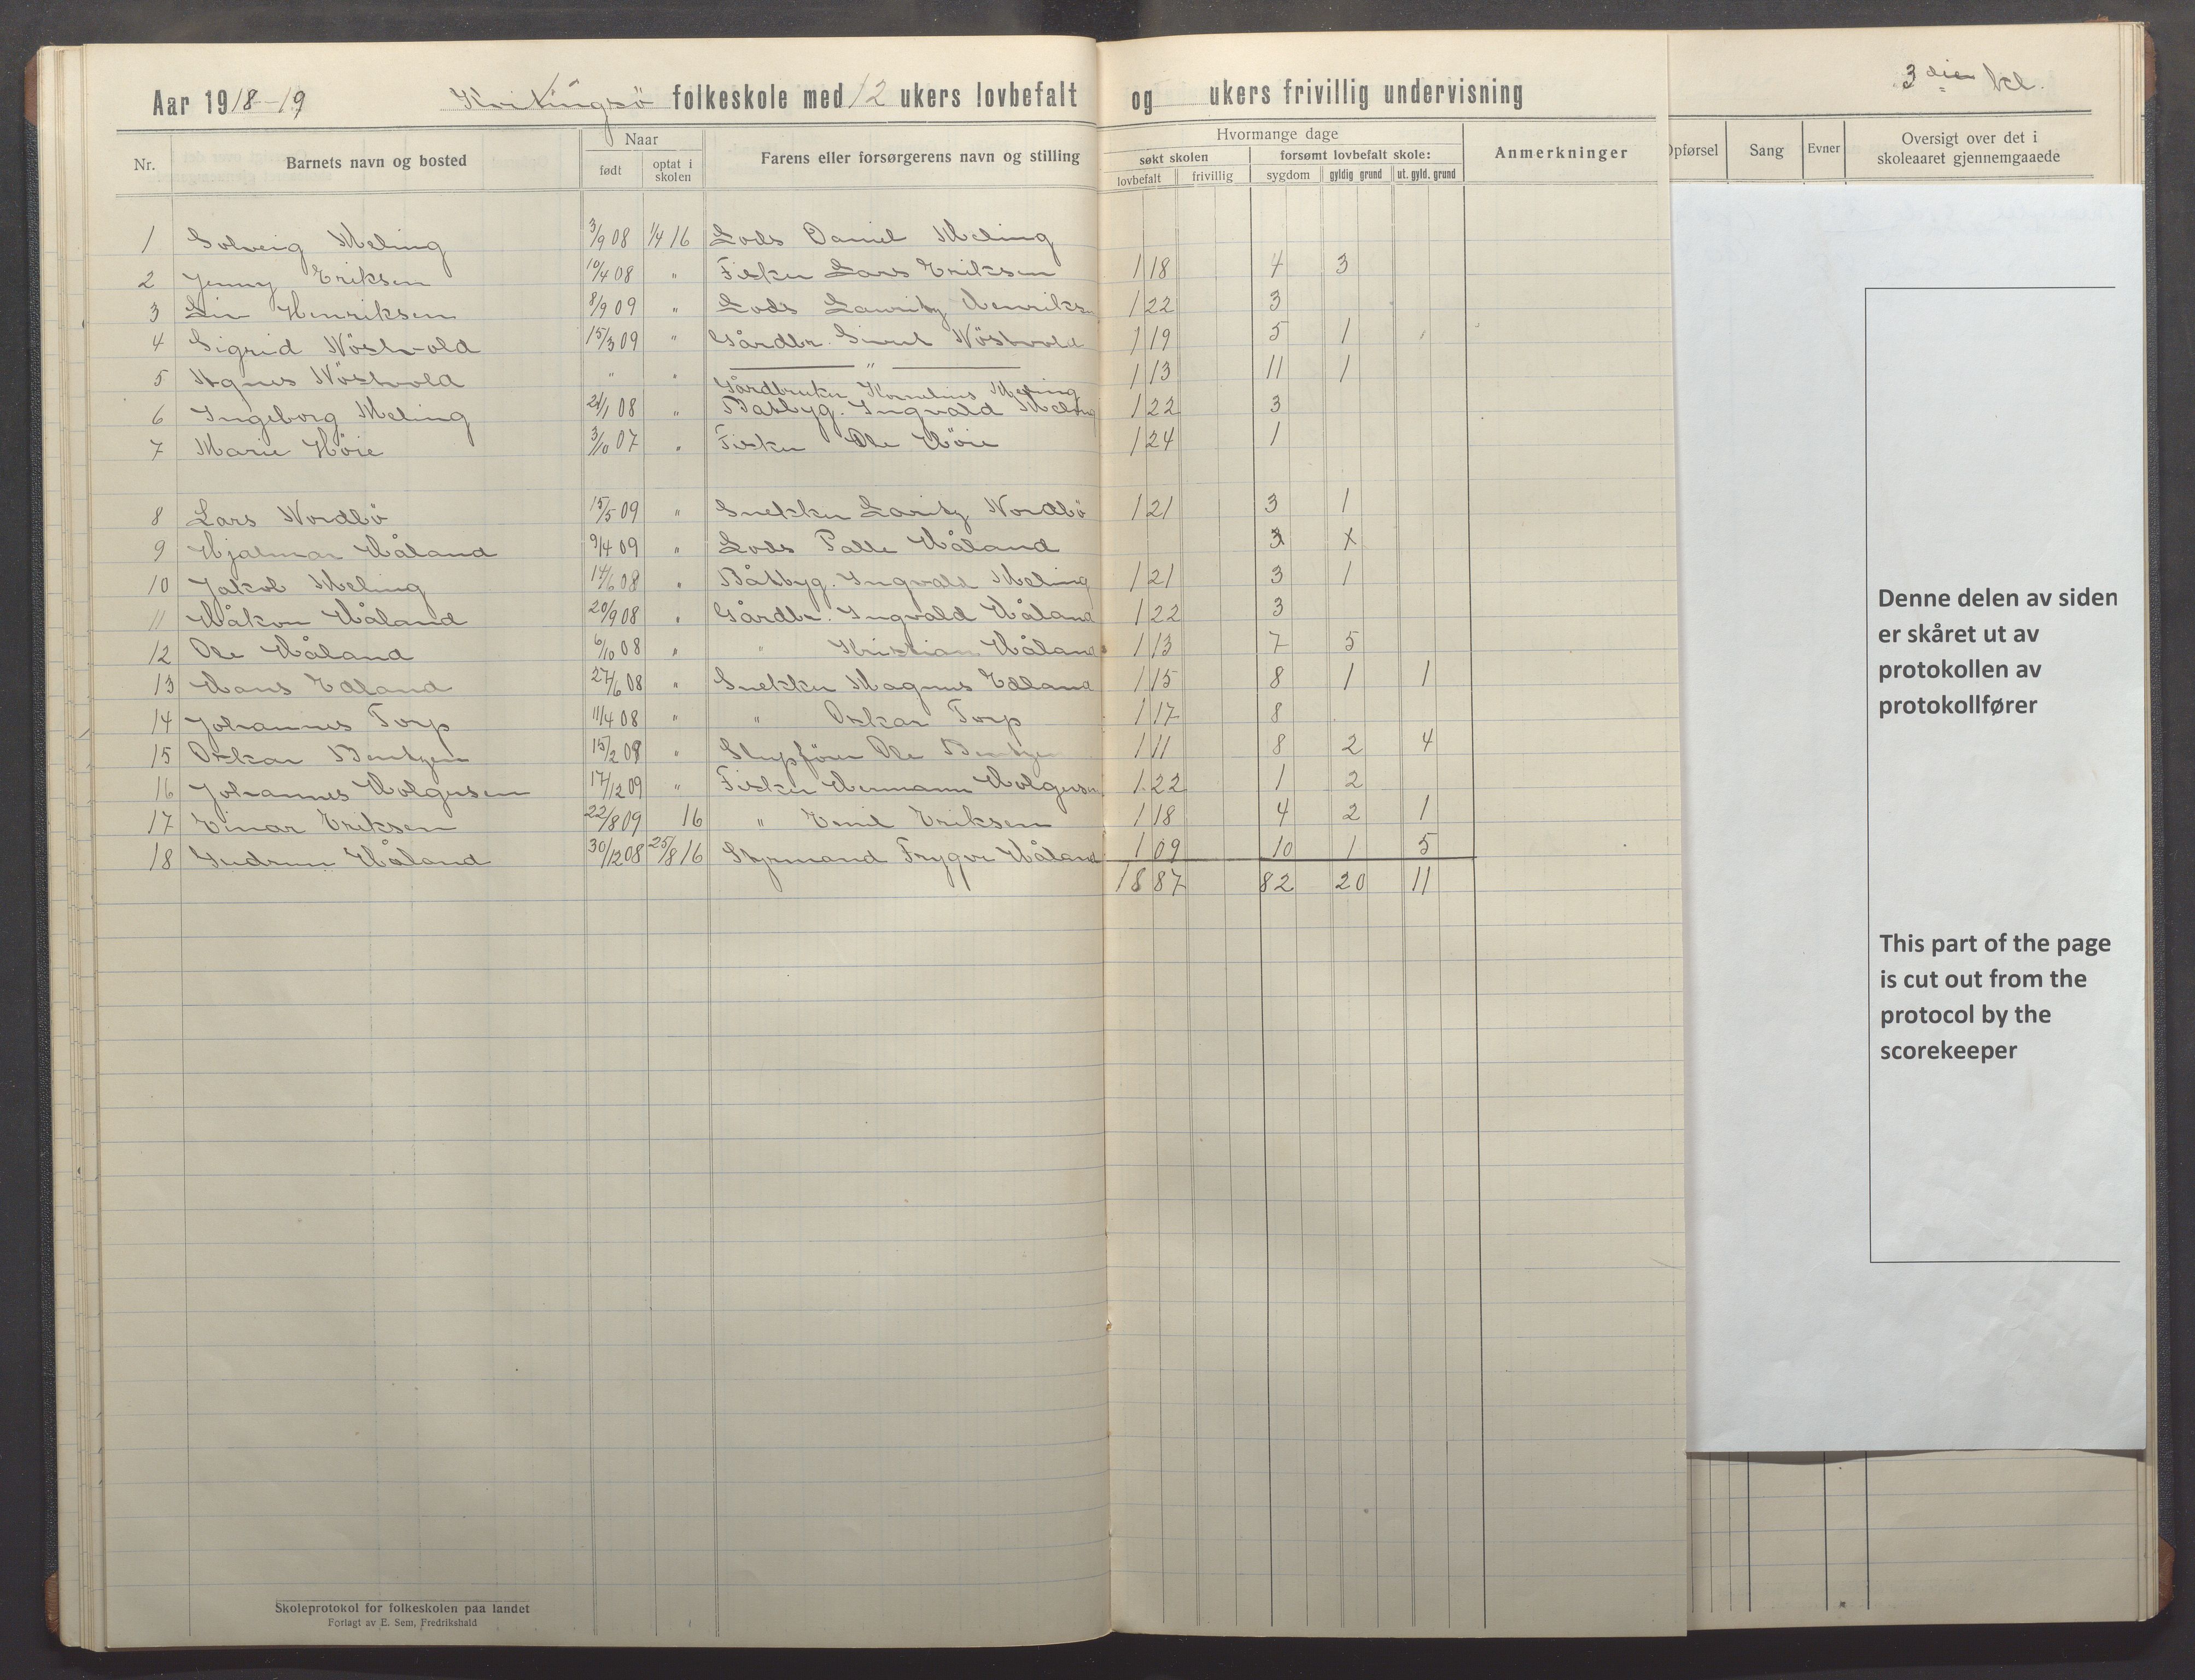 Aar 1918-19 Kvitingsö folkeskole med 12 ukers lovbefalt og ukers frivillig undervisning 3die kl.
Nr. Barnets navn og bosted Naar født optat i skolen Farens eller forsørgerens navn og stilling Hvormange dage søkt skolen lovbefalt frivillig forsømt lovbefalt skole: sygdom gyldig grund ut. gyld. grund Anmerkninger Opførsel Sang Evner Oversigt over det i skoleaaret gjennemgaaede
1 Solveig Meling 3/9 08 1/4 16 Lods Daniel Meling
2 Jenny Eriksen 10/4 08 " Fisker Lars Eriksen 118 4 3
3 Liv Henriksen 8/9 09 " Lods Lauritz Henriksen 122 3
4 Sigrid Nöstvold 15/3 09 " Gårdbr. Sivert Nöstvold 119 5 1
5 Agnes Nöstvold " " " 113 11 1
Gårdbruker Kornelius Meling
6 Ingeborg Meling 21/1 08 " Båtbyg. Ingvald Meling 122 3
7 Marie Höie 3/10 07 " Fisker Ole Höie 124 1
8 Lars Nordbö 15/5 09 " Snekker Laritz Nordbö 121 3 1
9 Hjalmar Håland 9/4 09 " Lods Palle Håland 3 x
10 Jakob Meling 14/6 08 " Båtbyg. Ingvald Meling 121 3 1
11 Håkon Håland 20/9 08 " Gårdbr. Ingvald Håland 122 3
12 Ole Håland 6/10 08 " " Kristian Håland 113 7 5
13 Hans Edland 27/6 08 " Snekker Magnus Edland 115 8 1 1
14 Johannes Torp 11/4 08 " " Oskar Torp 117 8
15 Oskar Bentzen 15/2 08 " Slupförer Ole Bentzen 111 8 2 4
16 Johannes Holgersen 17/12 09 " Fisker Hermann Holgersen 122 1 2
17 Einar Eriksen 22/8 09 16 " Emil Eriksen 118 4 2 1
18 Gudrun Håland 30/12 08 25/8 16 Styrmand Trygve Håland 109 10 1 5
1887 82 20 11
Denne delen av siden
er skåret ut av
protokollen av
protokollfører
This part of the page
is cut out from the
protocol by the
scorekeeper
Skoleprotokol for folkeskolen paa landet
Forlagt av E. Sem, Fredrikshald